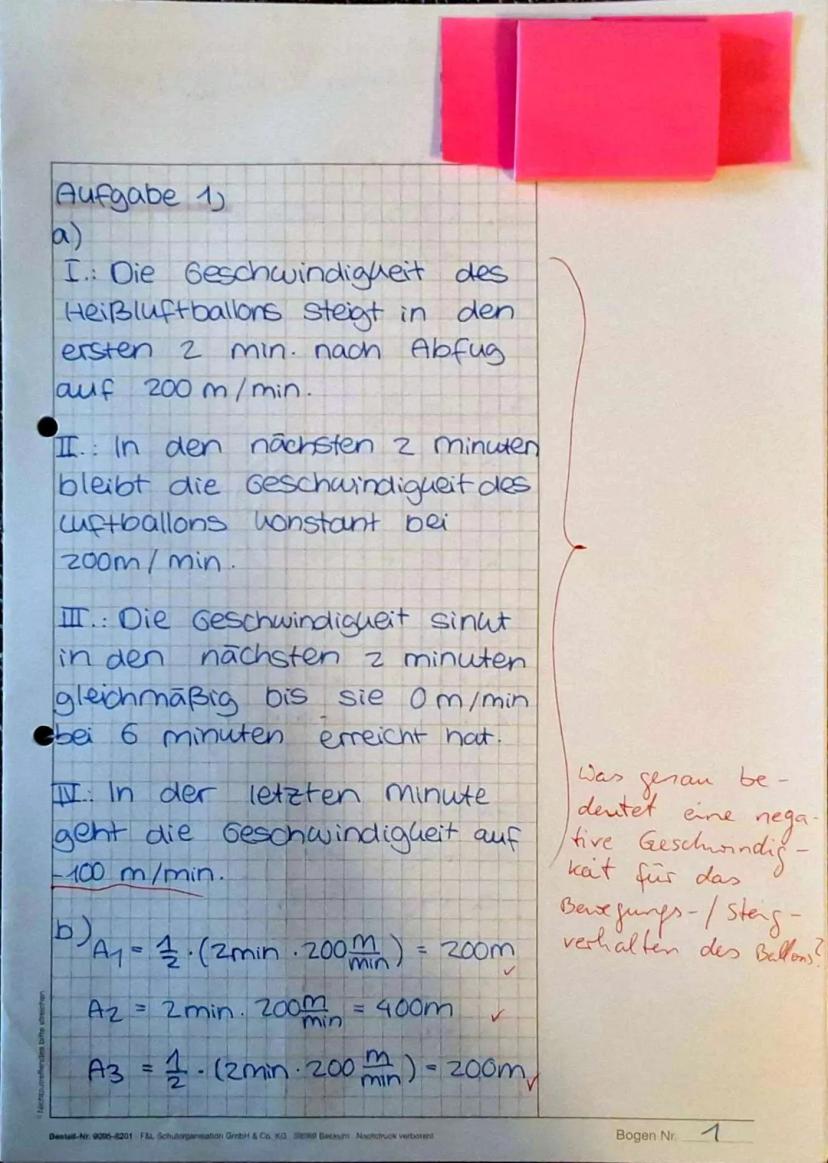 Aufgabe 1)
a)
I.: Die Geschwindigkeit des
Heißluftballons steigt in den
ersten 2 min. nach Abfug
auf 200 m/min.
II.: In den nächsten 2 minuten
bleibt die Geschwindigkeit des
Luftballons konstant bei
200m/min.
III.: Die Geschwindigkeit sinkt
in den nächsten 2 minuten
gleichmäßig bis sie 0 m/min
bei 6 minuten erreicht hat.
IV.: In der letzten Minute
geht die Geschwindigkeit auf
-100 m/min.
Was genau be-
deutet eine nega-
tive Geschwindig-
keit für das
Bewegungs-/Steig-
verhalten des Ballons?
b) A1 = 1/2 · (2min · 200 m/min) = 200m ✓
A2 = 2min · 200 m/min = 400m ✓
A3 = 1/2 · (2min · 200 m/min) = 200m ✓
Nichtzutreffendes bitte streichen
Bestell-Nr. 9095-8201 F&L Schulorganisation GmbH & Co. KG Beckum Nachdruck verboten!
Bogen Nr. 1